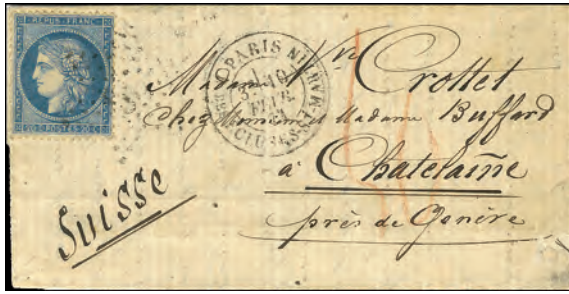 REPUB. FRANC.
20 C. POSTES 20 C.
PARIS
FEVR.
Madame Vve Crottet
Chez Monsieur Madame Buffard
à Chatelaine
près de Genève
Suisse